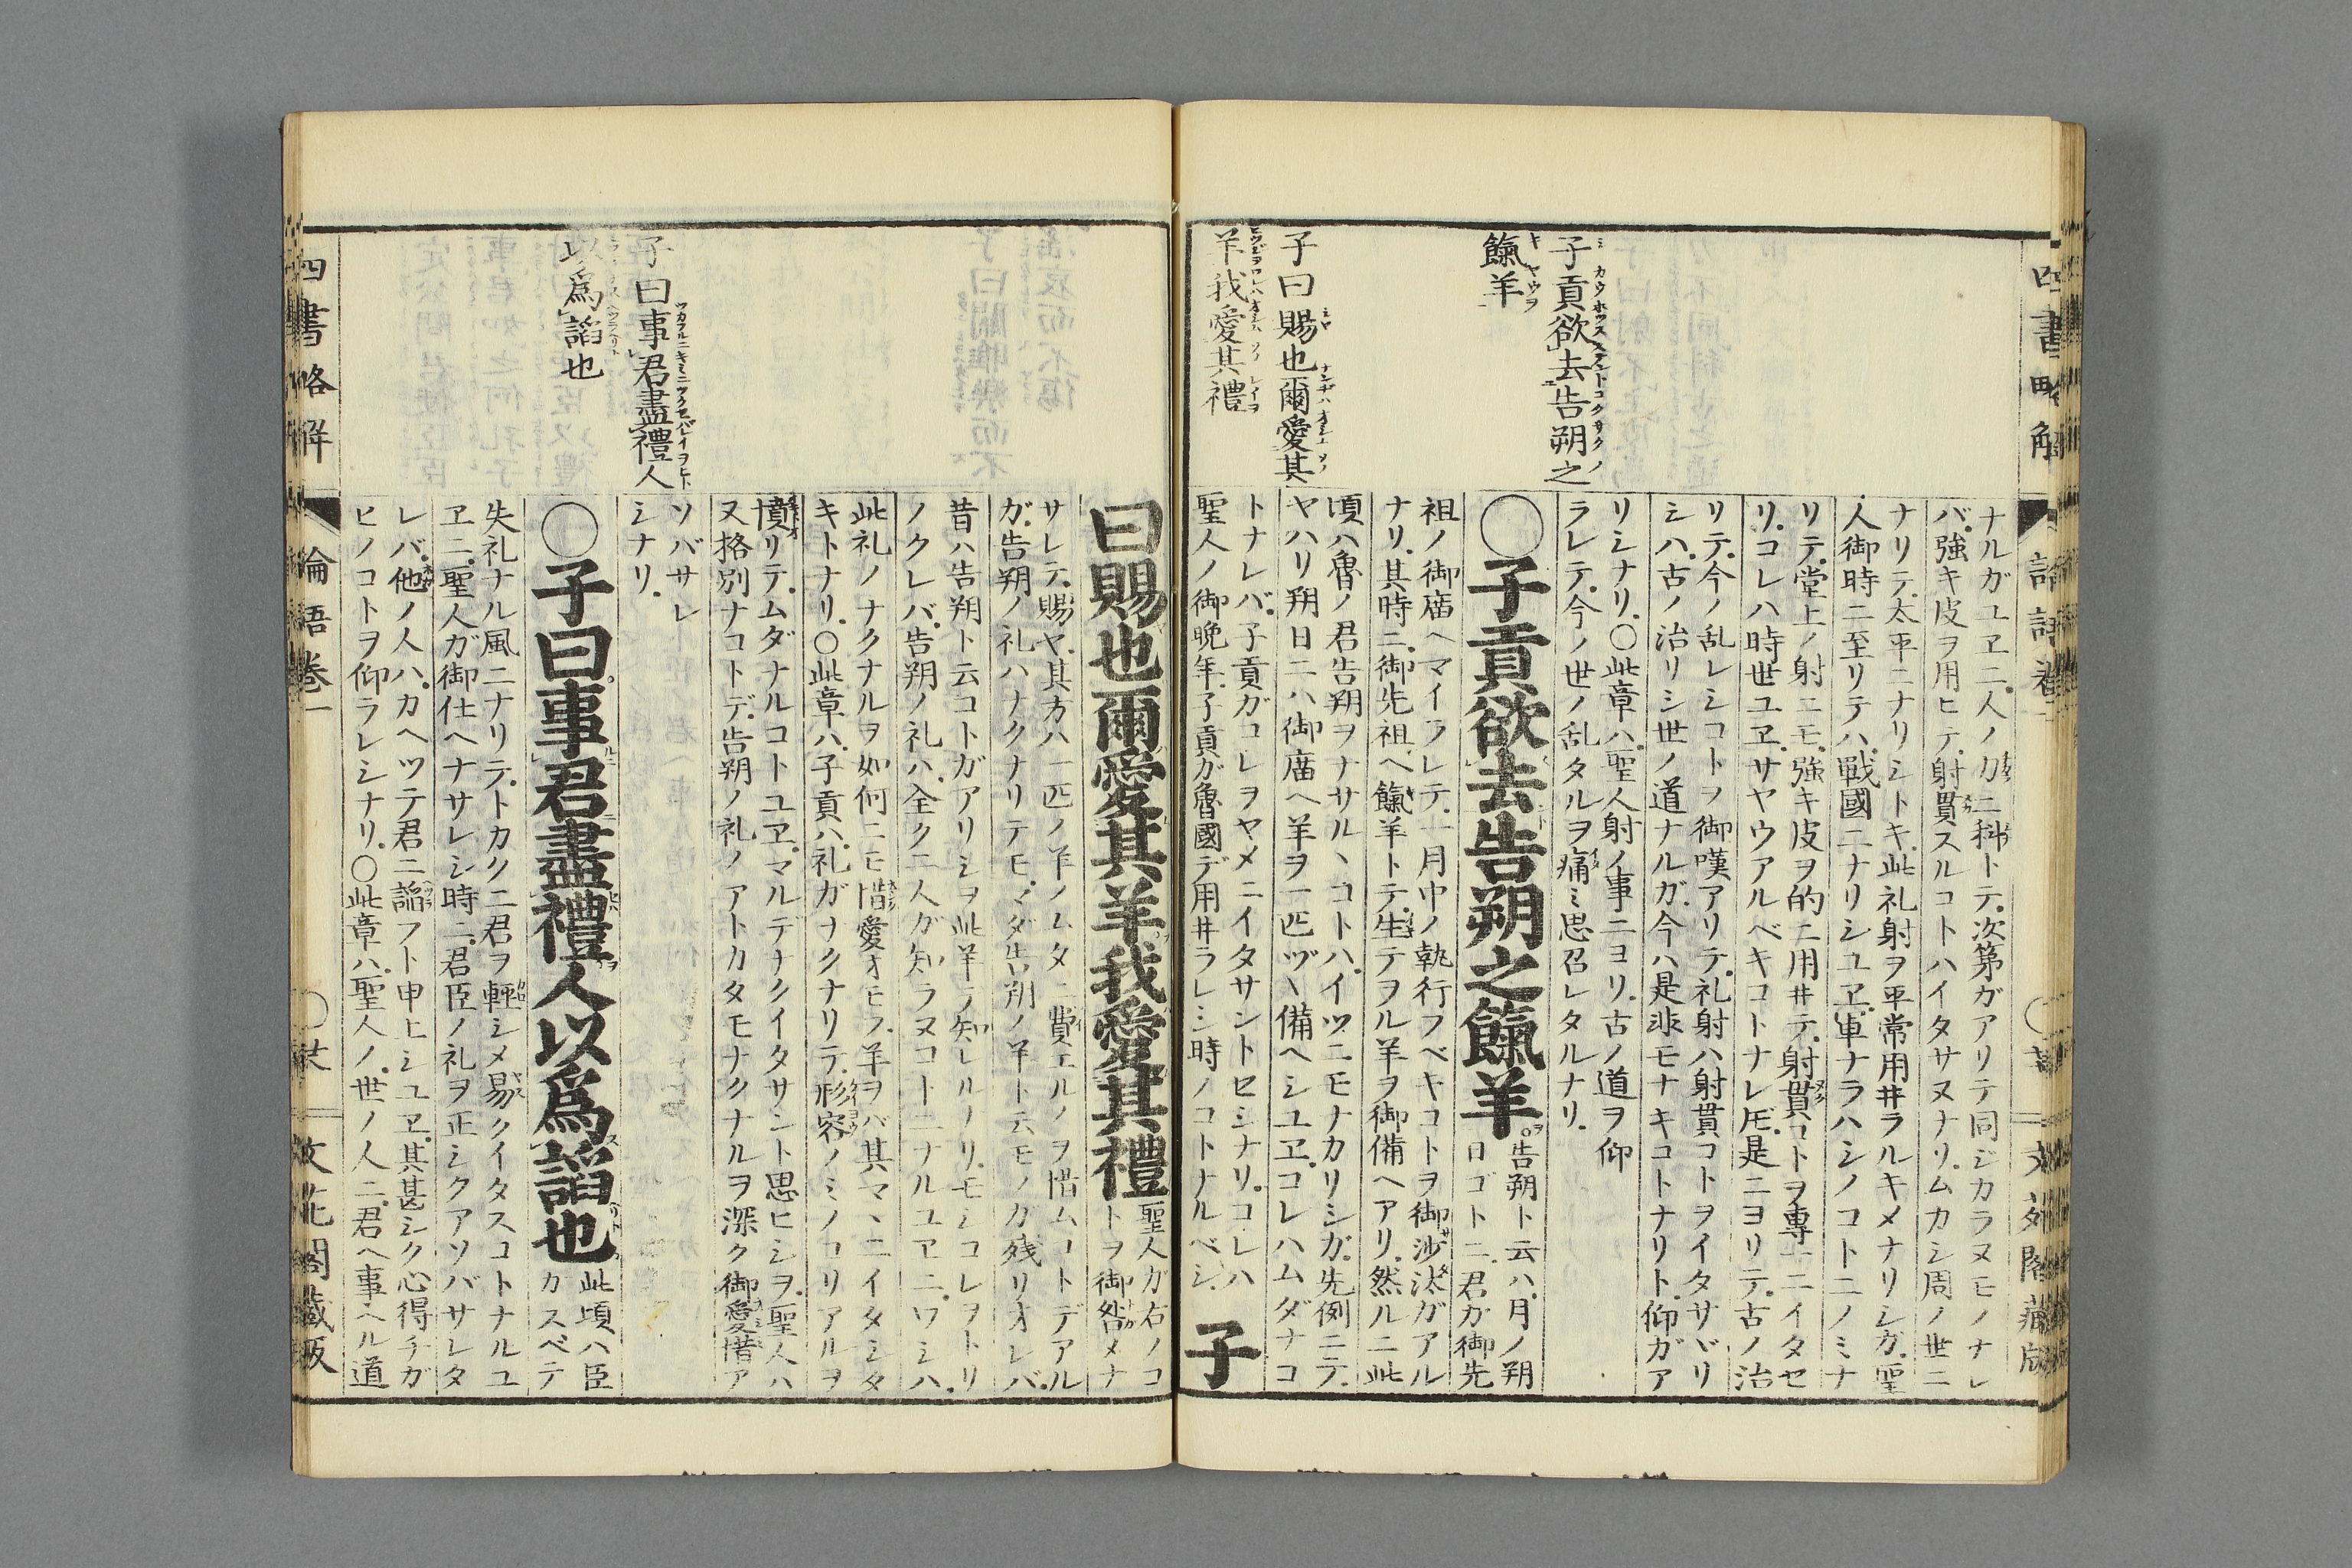 四書略解
論語卷一
子貢欲去告朔之
餼羊
子曰賜也爾愛其
羊我愛其禮
ナルガユヱニ人ノ力ニ科トテ次第ガアリテ同ジカラヌモノナレ
バ強キ皮ヲ用ヒテ射貫スルコトハイタサヌナリムカシ周ノ世ニ
ナリテ太平ニナリシトキ此礼射ヲ平常用井ラルキメナリシガ聖
人御時ニ至リテハ戦國ニナリシユヱ軍ナラハシノコトニノミナ
リテ堂上ノ射ニモ強キ皮ヲ的ニ用井テ射貫コトヲ専一ニイタセ
リコレハ時世ユヱサヤウアルベキコトナレ𪜈是ニヨリテ古ノ治
リテ今ノ乱レシコトヲ御嘆アリテ礼射ハ射貫コトヲイタサヾリ
シハ古ノ治リシ世ノ道ナルガ今ハ是非モナキコトナリト仰ガア
リシナリ○此章ハ聖人射ノ事ニヨリ古ノ道ヲ仰
ラレテ今ノ世ノ乱タルヲ痛ミ思召レタルナリ
○子貢欲去告朔之餼羊
告朔ト云ハ月ノ朔
日ゴトニ君ガ御先
祖ノ御廟ヘマイラレテ一月中ノ執行フベキコトヲ御沙汰ガアル
ナリ其時ニ御先祖ヘ餼羊トテ生テヲル羊ヲ御備ヘアリ然ルニ此
頃ハ魯ノ君告朔ヲナサルヽコトハイツニモナカリシガ先例ニテ
ヤハリ朔日ニハ御廟ヘ羊ヲ一匹ヅヽ備ヘシユヱコレハムダナコ
トナレバ子貢ガコレヲヤメニイタサントセシナリコレハ
聖人ノ御晩年子貢ガ魯國デ用井ラレシ時ノコトナルベシ
子
曰賜也爾愛其羊我愛其禮
聖人ガ右ノコ
トヲ御咎メナ
サレテ賜ヤ其方ハ一匹ノ羊ノムダニ費エルノヲ惜ムコトデアル
ガ告朔ノ礼ハナクナリテモマダ告朔ノ羊ト云モノガ残リオレバ
昔ハ告朔ト云コトガアリシヲ此羊デ知レルノリモシコレヲトリ
ノクレバ告朔ノ礼ハ全ク二人ガ知ラヌコトニナルユヱニワシハ
此礼ノナクナルヲ如何ニモ惜愛オモフ羊ヲバ其マヽニイタシタ
キトナリ○此章ハ子貢ハ礼ガナクナリテ形容ノミノコリアルヲ
憤リテムダナルコトユヱマルデナクイタサント思ヒシヲ聖人ハ
又格別ナコトデ告朔ノ礼ノアトカタモナクナルヲ深ク御愛惜ア
ソバサレ
シナリ
子曰事君盡禮人
以爲謟也
○子曰事君盡禮人以爲謟也
此頃ハ臣
カスベテ
失礼ナル風ニナリテトカクニ君ヲ軽シメ易クイタスコトナルユ
ヱニ聖人ガ御仕ヘナサレシ時ニ君臣ノ礼ヲ正シクアソバサレタ
レバ他ノ人ハカヘツテ君ニ謟フト申ヒシユヱ其甚シク心得チガ
ヒノコトヲ仰ラレシナリ○此章ハ聖人ノ世ノ人ニ君ヘ事ヘル道
四書略解
論語卷一
文花閣藏版